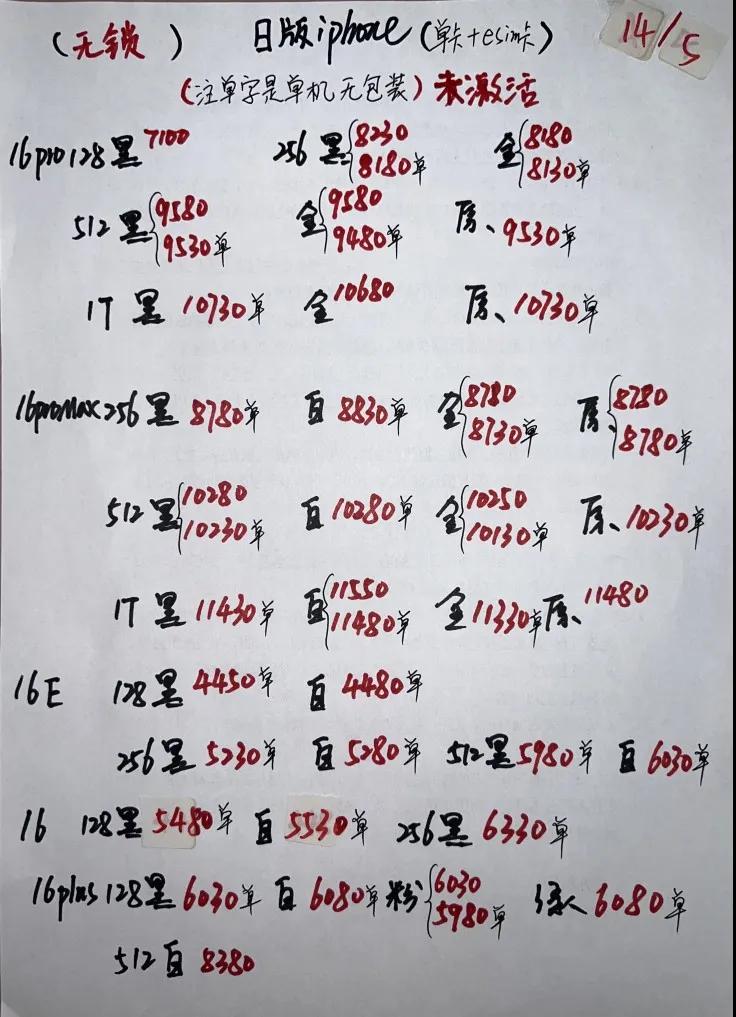 （无锁） 日版iphone（单卡+esim卡） 14/5
（注单字是单机无包装）未激活
16pro128黑7100 256黑{8230 8180单 金{8180 8130单
512黑{9580 9530单 金{9580 9480单 原、9530单
1T黑10730单 金10680 原、10730单
16promax256黑8780单 白8830单 金{8780 8730单 原、{8780 8780单
512黑{10280 10230单 白10280单 金{10250 10130单 原、10230单
1T黑11430单 白{11550 11480单 金11330单 原、11480
16E 128黑4450单 白4480单
256黑5230单 白5280单 512黑5980单 白6030单
16 128黑5480单 白5530单 256黑6330单
16plus128黑6030单 白6080单 粉{6030 5980单 6080单
512白8380